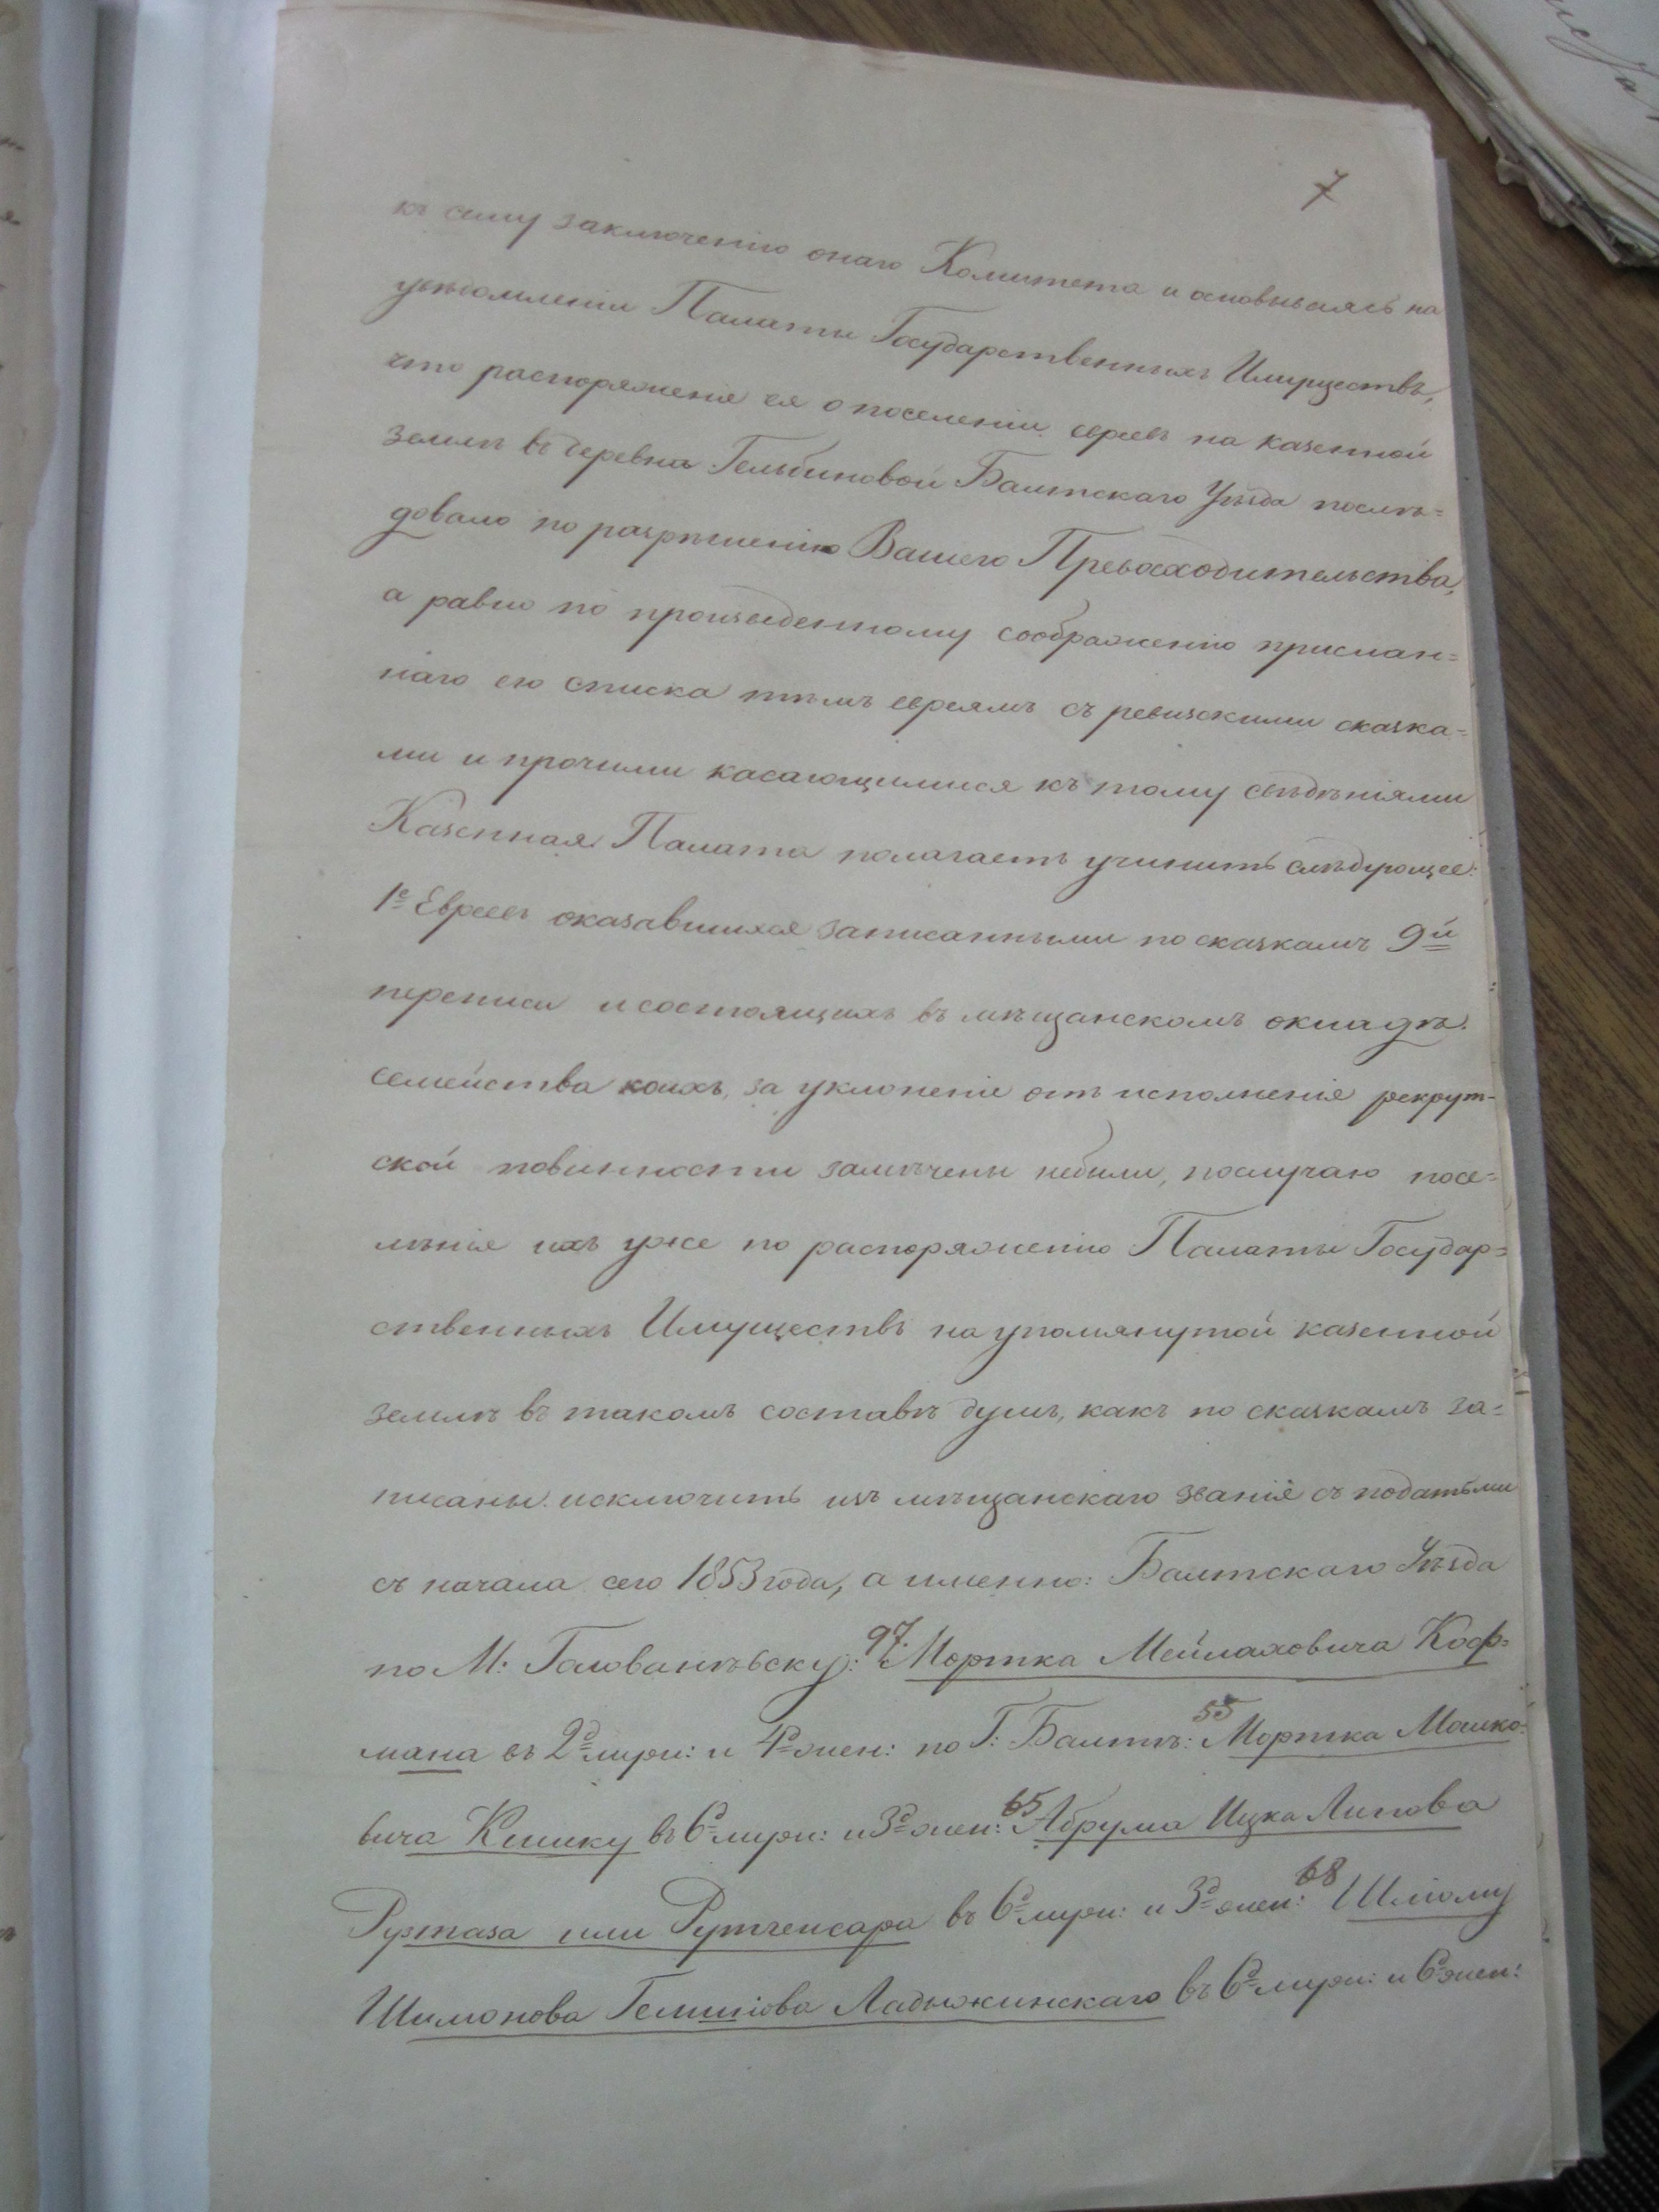 7
къ сему заключенію онаго Комитета и основываясь на
увѣдомленіи Палаты Государственныхъ Имуществъ,
что распоряженіе ея о поселеніи евреевъ на казенной
землѣ въ деревнѣ Гельбиновой Балтскаго Уѣзда послѣ=
довало по разрѣшенію Вашего Превосходительства,
а равно по произведенному соображенію прислан=
наго ею списка тѣмъ евреямъ съ ревизскими сказка=
ми и прочими касающимися къ тому свѣдѣніями
Казенная Палата полагаетъ учинить слѣдующее:
1е Евреевъ оказавшихся записанными по сказкамъ 9й
переписи и состоящихъ въ мѣщанскомъ окладѣ.
семейства коихъ, за уклоненіе отъ исполненія рекрут-
ской повинности замѣчены небыли, послучаю посе=
лѣнія ихъ уже по распоряженію Палаты Государ=
ственныхъ Имуществъ на упомянутой казенной
землѣ въ такомъ составѣ душъ, какъ по сказкамъ за=
писаны. исключить изъ мѣщанскаго званія съ податьми
съ начала сего 1853 года, а именно: Балтскаго Уѣзда
по М: Голованѣвску: 97. Мортка Мейлаховича Коф=
мана въ 2д мужс: и 4д жен: по Г: Балтѣ: 55 Мортка Мошко=
вича Кишку въ 6д мужс: и 3д жен: 65 Абрума Ицка Липова
въ 6д мужс: и 3д жен: 68 Шліому
Шимонова Ладыжинскаго въ 6д мужс: и 6д жен: